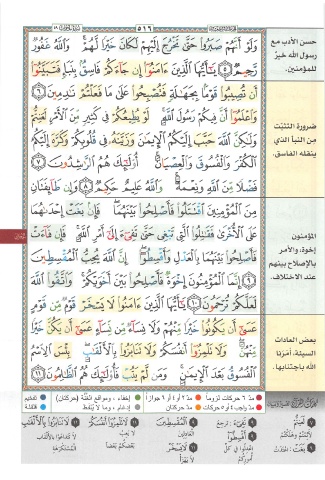 ٥١٦
وَلَوْ أَنَّهُمْ صَبَرُوا حَتَّىٰ تَخْرُجَ إِلَيْهِمْ لَكَانَ خَيْرًا لَّهُمْ ۚ وَاللَّهُ غَفُورٌ
رَّحِيمٌ ٥ يَا أَيُّهَا الَّذِينَ ءَامَنُوا إِن جَاءَكُمْ فَاسِقٌ بِنَبَإٍ فَتَبَيَّنُوا
أَن تُصِيبُوا قَوْمًا بِجَهَالَةٍ فَتُصْبِحُوا عَلَىٰ مَا فَعَلْتُمْ نَادِمِينَ ٦
وَاعْلَمُوا أَنَّ فِيكُمْ رَسُولَ اللَّهِ ۚ لَوْ يُطِيعُكُمْ فِي كَثِيرٍ مِّنَ الْأَمْرِ لَعَنِتُّمْ
وَلَٰكِنَّ اللَّهَ حَبَّبَ إِلَيْكُمُ الْإِيمَانَ وَزَيَّنَهُ فِي قُلُوبِكُمْ وَكَرَّهَ إِلَيْكُمُ
الْكُفْرَ وَالْفُسُوقَ وَالْعِصْيَانَ ۚ أُولَٰئِكَ هُمُ الرَّاشِدُونَ ٧
فَضْلًا مِّنَ اللَّهِ وَنِعْمَةً ۚ وَاللَّهُ عَلِيمٌ حَكِيمٌ ٨ وَإِن طَائِفَتَانِ
مِنَ الْمُؤْمِنِينَ اقْتَتَلُوا فَأَصْلِحُوا بَيْنَهُمَا ۖ فَإِن بَغَتْ إِحْدَاهُمَا
عَلَى الْأُخْرَىٰ فَقَاتِلُوا الَّتِي تَبْغِي حَتَّىٰ تَفِيءَ إِلَىٰ أَمْرِ اللَّهِ ۚ فَإِن فَاءَتْ
فَأَصْلِحُوا بَيْنَهُمَا بِالْعَدْلِ وَأَقْسِطُوا ۖ إِنَّ اللَّهَ يُحِبُّ الْمُقْسِطِينَ
٩ إِنَّمَا الْمُؤْمِنُونَ إِخْوَةٌ فَأَصْلِحُوا بَيْنَ أَخَوَيْكُمْ ۚ وَاتَّقُوا اللَّهَ
لَعَلَّكُمْ تُرْحَمُونَ ١٠ يَا أَيُّهَا الَّذِينَ ءَامَنُوا لَا يَسْخَرْ قَوْمٌ مِّن قَوْمٍ
عَسَىٰ أَن يَكُونُوا خَيْرًا مِّنْهُمْ وَلَا نِسَاءٌ مِّن نِّسَاءٍ عَسَىٰ أَن يَكُنَّ خَيْرًا
مِّنْهُنَّ ۖ وَلَا تَلْمِزُوا أَنفُسَكُمْ وَلَا تَنَابَزُوا بِالْأَلْقَابِ ۖ بِئْسَ الِاسْمُ
الْفُسُوقُ بَعْدَ الْإِيمَانِ ۚ وَمَن لَّمْ يَتُبْ فَأُولَٰئِكَ هُمُ الظَّالِمُونَ ١١
حسن الأدب مع
رسول الله خيرٌ
للمؤمنين.
ضرورة التثبّت
من النبأ الذي
ينقله الفاسق.
المؤمنون
إخوة، والأمر
بالإصلاح بينهم
عند الاختلاف.
بعض العادات
السيئة، أمَرَنا
الله باجتنابها.
مدّ ٦ حركات لزوماً
مدّ ٢ أو ٤ أو ٦ جوازاً
إخفاء، ومواقع الغنّة (حركتان)
تفخيم
مدّ واجب ٤ أو ٥ حركات
مدّ حركتان
إدغام، وما لا يُلفظ
قلقلة